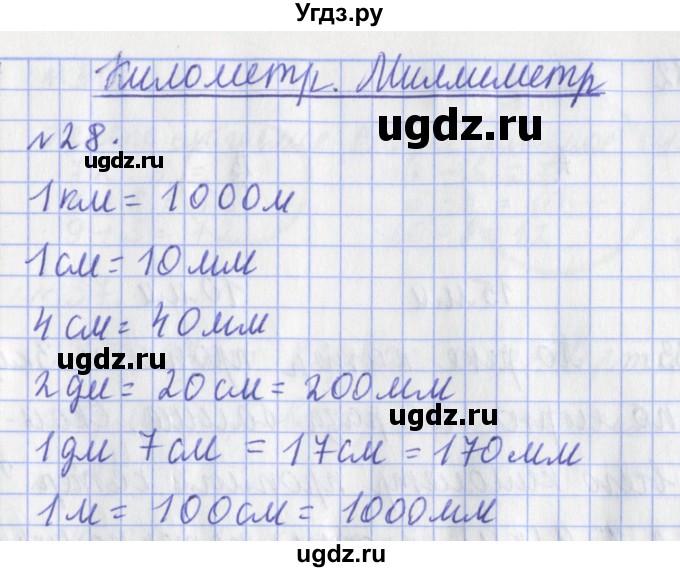 Угдз.ру
Километр. Миллиметр
ugdz.ru
№28.
ugdz.ru
1км = 1000м
1см = 10мм
4см = 40мм
ugdz.ru
2дм = 20см = 200мм
1дм 7см = 17см = 170мм
1м = 100см = 1000мм
ugdz.ru
ugdz.ru